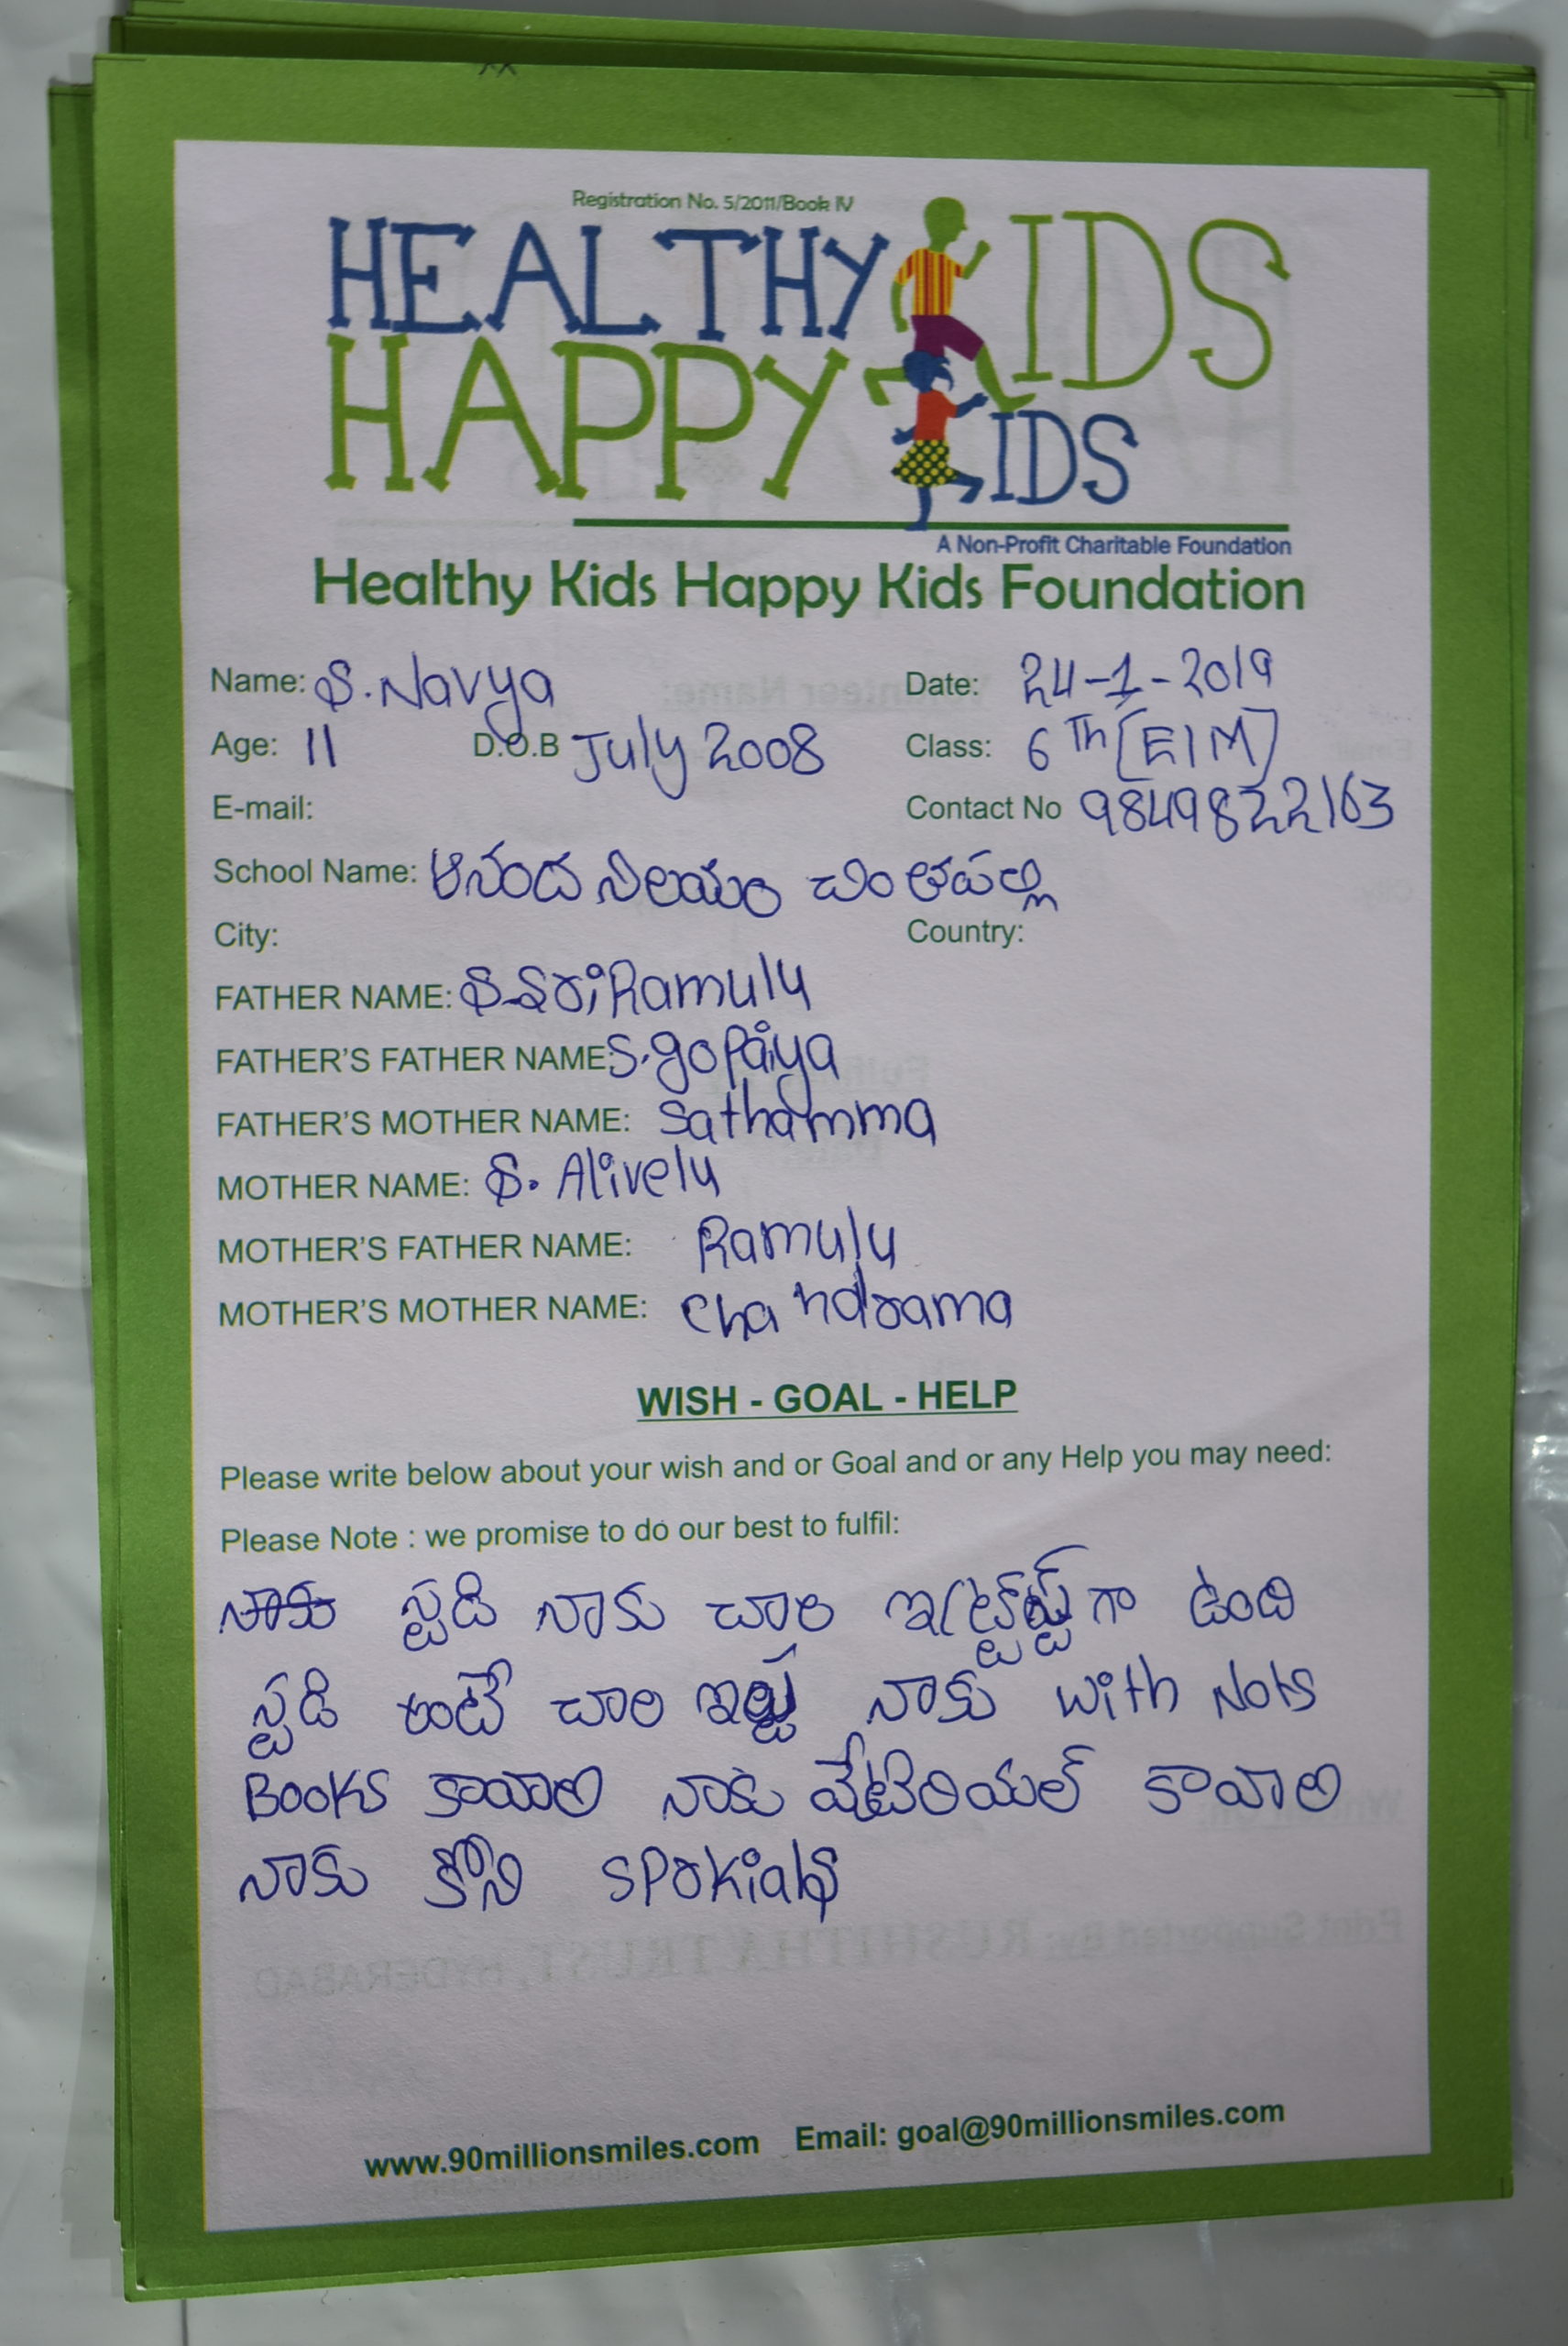 Registration No. 5/2011/Book IV
HEALTHY KIDS
HAPPY KIDS
A Non-Profit Charitable Foundation
Healthy Kids Happy Kids Foundation
Name: S. Navya Date: 24-1-2019
Age: 11 D.O.B July 2008 Class: 6 Th [E/M]
E-mail: Contact No 9849822163
School Name: ఆనంద నిలయం చింతపల్లి
City: Country:
FATHER NAME: S. Sri Ramulu
FATHER'S FATHER NAME: S. gopaiya
FATHER'S MOTHER NAME: Sathamma
MOTHER NAME: S. Alivelu
MOTHER'S FATHER NAME: Ramulu
MOTHER'S MOTHER NAME: Chandrama
WISH - GOAL - HELP
Please write below about your wish and or Goal and or any Help you may need:
Please Note : we promise to do our best to fulfil:
స్టడి నాకు చాల గా ఉంది
స్టడి అంటే చాల నాకు with Nots
Books కావాలి నాకు మేటెరియల్ కావాలి
నాకు కొని
www.90millionsmiles.com Email: goal@90millionsmiles.com